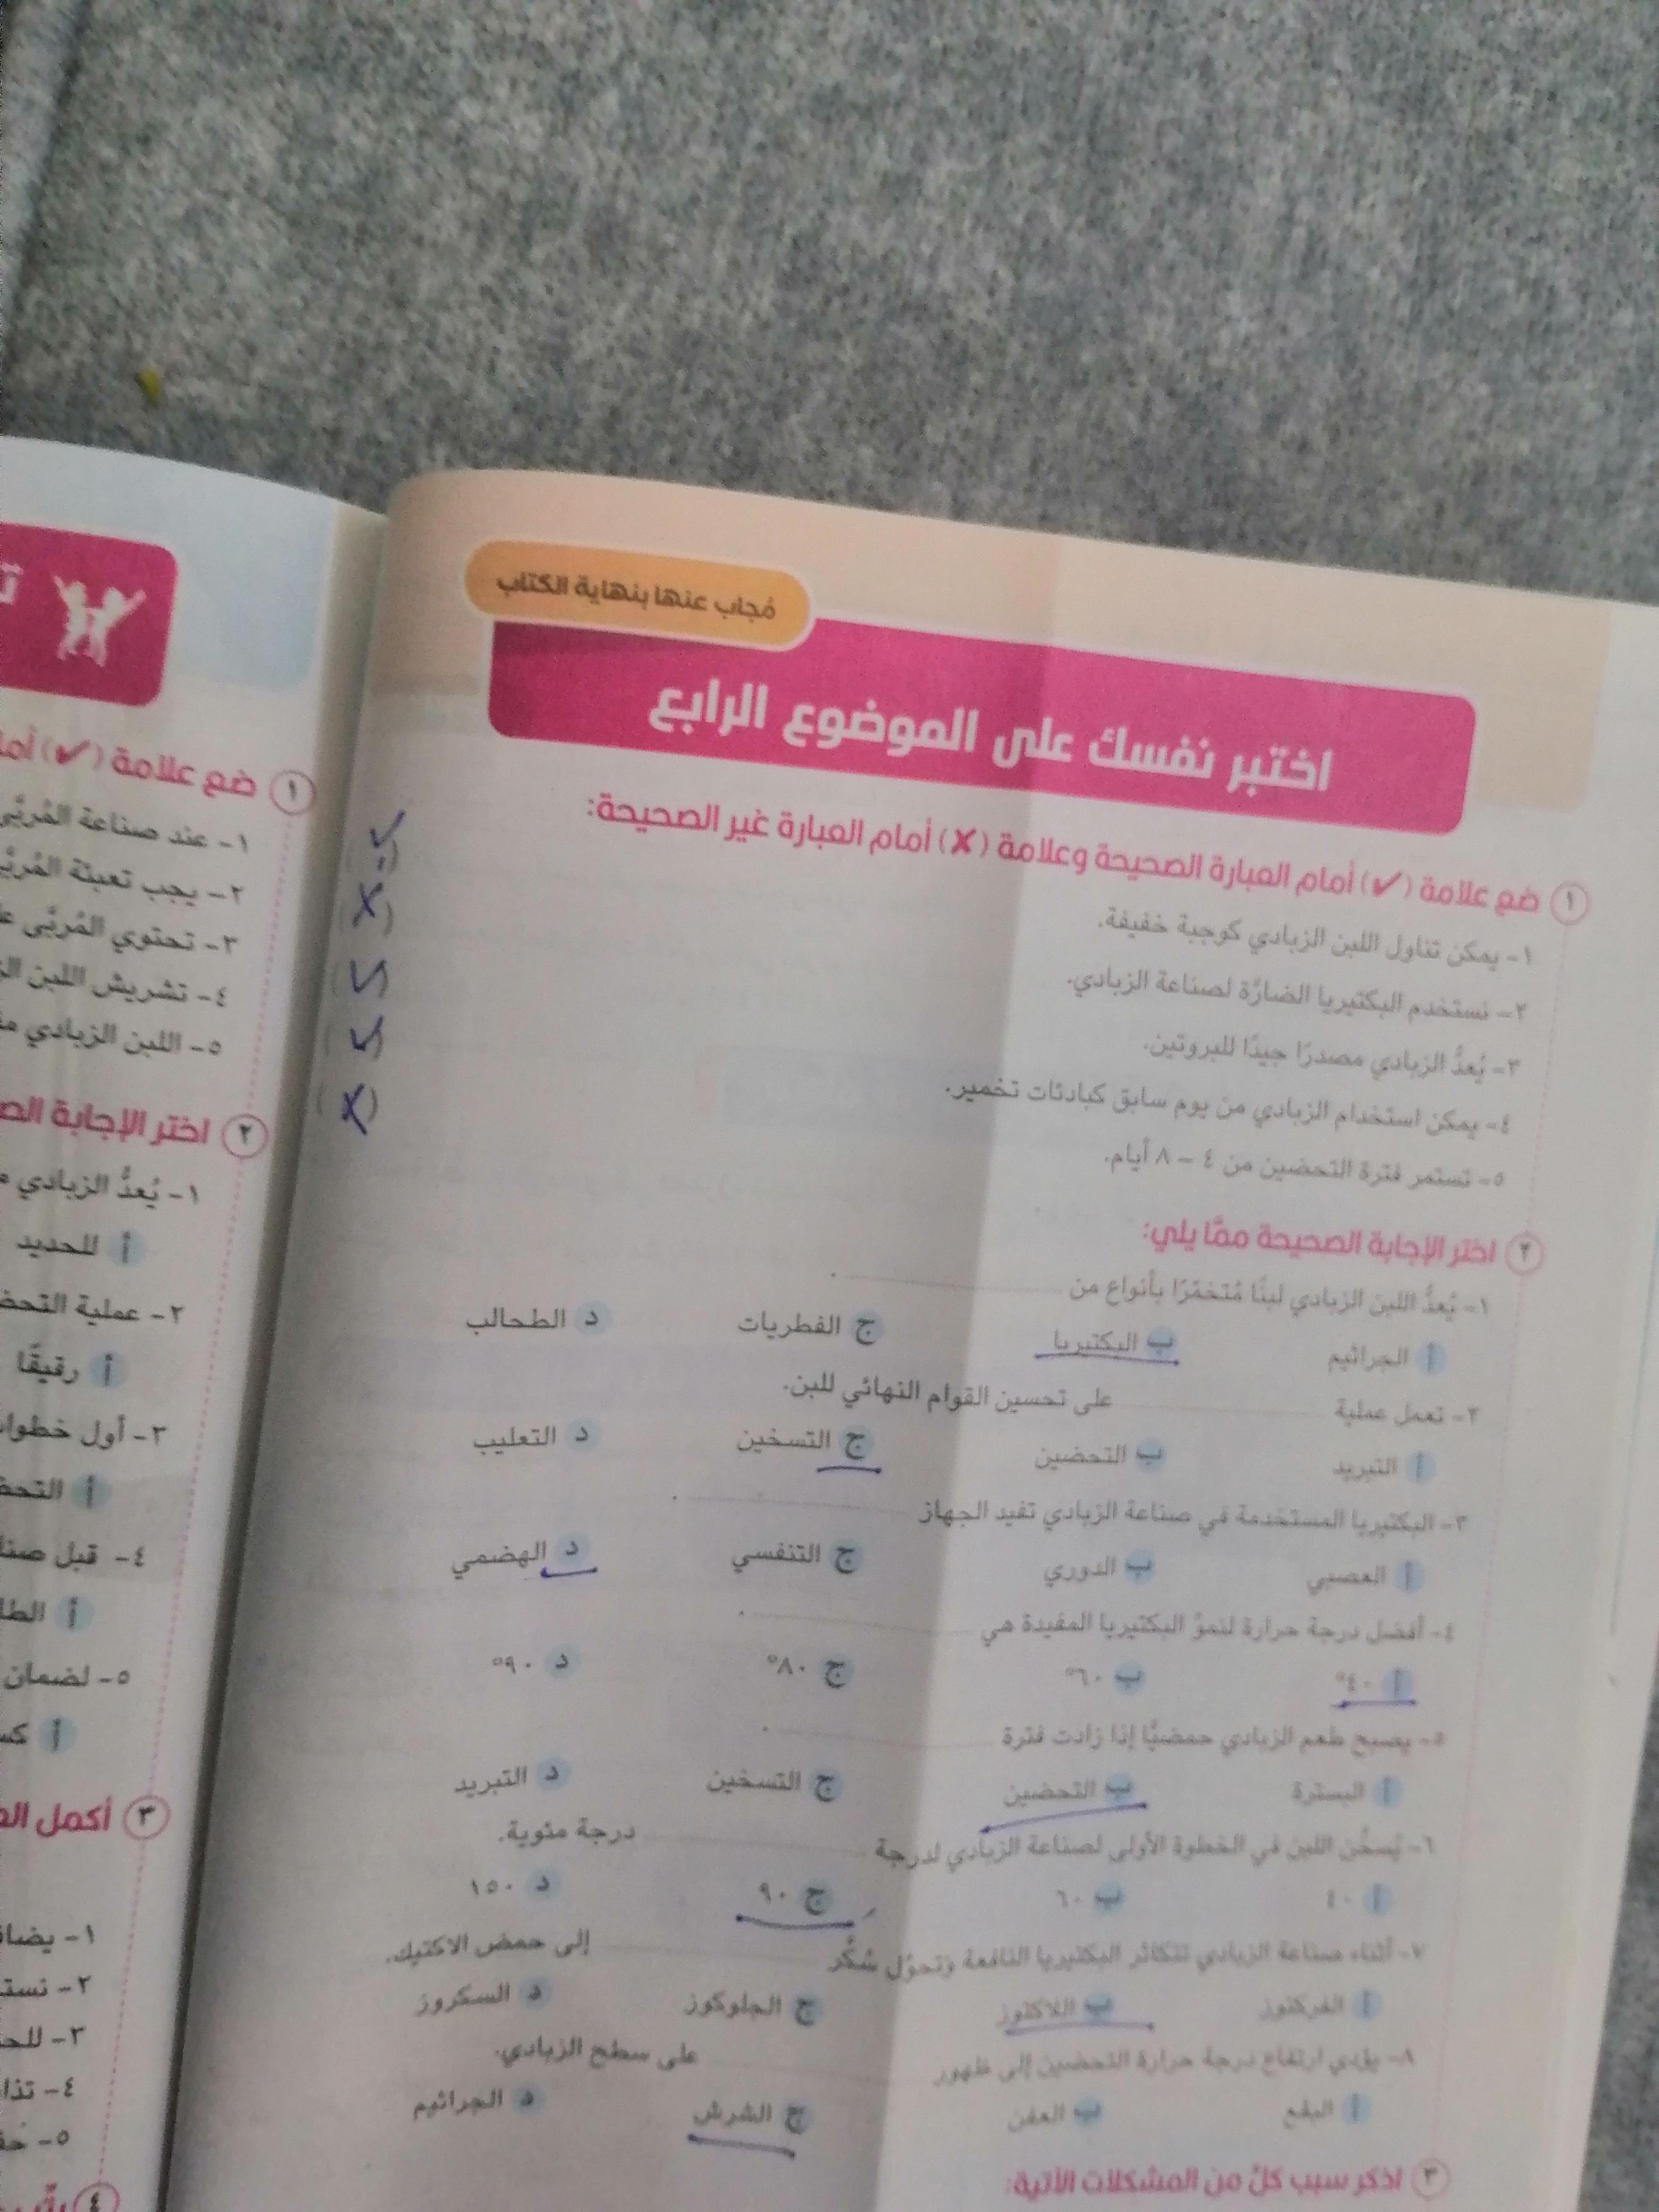 مُجاب عنها بنهاية الكتاب
اختبر نفسك على الموضوع الرابع
١ ضع علامة (✔) أمام العبارة الصحيحة وعلامة (✘) أمام العبارة غير الصحيحة:
١- يمكن تناول اللبن الزبادي كوجبة خفيفة. (✓)
٢- نستخدم البكتيريا الضارَّة لصناعة الزبادي. (X)
٣- يُعدُّ الزبادي مصدرًا جيدًا للبروتين. (✓)
٤- يمكن استخدام الزبادي من يوم سابق كبادئات تخمير. (✓)
٥- تستمر فترة التحضين من ٤ – ٨ أيام. (X)
٢ اختر الإجابة الصحيحة ممَّا يلي:
١- يُعدُّ اللبن الزبادي لبنًا مُتخمِّرًا بأنواع من .
أ الجراثيم ب البكتيريا ج الفطريات د الطحالب
٢- تعمل عملية على تحسين القوام النهائي للبن.
أ التبريد ب التحضين ج التسخين د التعليب
٣- البكتيريا المستخدمة في صناعة الزبادي تفيد الجهاز .
أ العصبي ب الدوري ج التنفسي د الهضمي
٤- أفضل درجة حرارة لنموِّ البكتيريا المفيدة هي .
أ ٤٠° ب ٦٠° ج ٨٠° د ٩٠°
٥- يصبح طعم الزبادي حمضيًّا إذا زادت فترة .
أ البسترة ب التحضين ج التسخين د التبريد
٦- يُسخَّن اللبن في الخطوة الأولى لصناعة الزبادي لدرجة درجة مئوية.
أ ٤٠ ب ٦٠ ج ٩٠ د ١٥٠
٧- أثناء صناعة الزبادي تتكاثر البكتيريا النافعة وتحوِّل سُكَّر إلى حمض الاكتيك.
أ الفركتوز ب اللاكتوز ج الجلوكوز د السكروز
٨- يؤدي ارتفاع درجة حرارة التحضين إلى ظهور على سطح الزبادي.
أ البقع ب العفن ج الشرش د الجراثيم
٣ اذكر سبب كلٍّ من المشكلات الآتية:
١ ضع علامة (✔)
١- عند صناعة المُربَّى
٢- يجب تعبئة
٣- تحتوي المُربَّى
٤- تشريش اللبن
٥- اللبن الزبادي
٢ اختر الإجابة
١- يُعدُّ الزبادي
أ للحديد
٢- عملية
أ رقيقًا
٣- أول
أ
٤- قبل
أ
٥- لضمان
أ
٣ أكمل
١-
٢-
٣-
٤-
٥-
٤